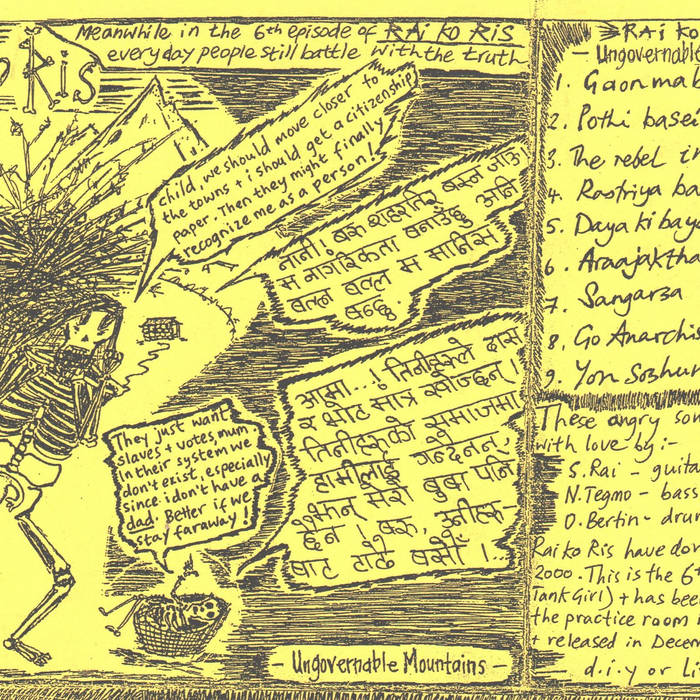 Meanwhile in the 6th episode of RAI KO RIS
everyday people still battle with the truth
Ris
child, we should move closer to
the towns + i should get a citizenship
paper. Then they might finally
recognize me as a person!
नानी! बरु शहरतिर बस्न जाउँ।
म नागरिकता बनाउँछु अनि
बल्ल बल्ल म मानिस
बन्छु.
They just want
slaves + votes, mum
in their system we
don't exist, especially
since i don't have a
dad. Better if we
stay faraway!
आमा...! तिनीहरूले दास
र भोट मात्र खोज्छन्।
तिनीहरूको समाजमा
हामीलाई गन्देनन्,
झन् मेरो बुबा पनि
छैन। बरु, उनीहरू-
बाट टाढै बसौँ।...
- Ungovernable Mountains -
RAI KO
- Ungovernable
1. Gaon ma
2. Pothi basei
3. The rebel i
4. Rastriya ba
5. Daya ki bay
6. Araajaktha
7. Sangarsa
8. Go Anarchis
9. Yon Soshur
These angry so
with love by:-
S. Rai - guita
N. Tegmo - bass
O. Bertin - dru
Rai ko Ris have do
2000. This is the 6
Tank Girl) + has bee
the practice room
+ released in Decem
d.i.y or Li